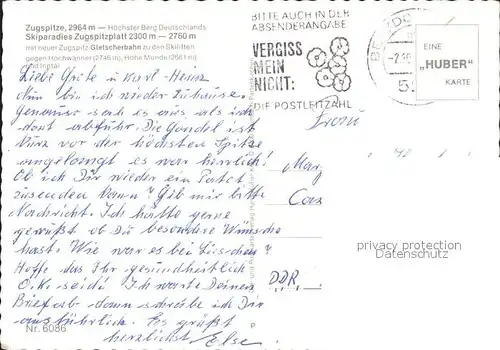 Zugspitze, 2964 m — Höchster Berg Deutschlands
Skiparadies Zugspitzplatt 2300 m — 2760 m
mit neuer Zugspitz-Gletscherbahn zu den Skiliften
gegen Hochwanner (2746 m), Hohe Munde (2661 m)
und Inntal
Liebe Grete u. Karl-Heinz
Nun bin ich wieder zuhause.
Genauso sah es aus als ich
dort abfuhr. Die Gondel ist
kurz vor der höchsten Spitze
angelangt es war herrlich!
Ob ich Dir wieder ein Paket
zusenden kann? Gib mir bitte
Nachricht. Ich hätte gerne
gewußt ob Du besondere Wünsche
hast. Wie war es bei
Hoffe das Ihr gesundheitlich
O.K. seid! Ich warte Deinen
Brief ab dann schreibe ich Dir
ausführlich. Es grüßt
herzlichst Else.
Nr. 6086
BITTE AUCH IN DER
ABSENDERANGABE
VERGISS
MEIN
NICHT:
DIE POSTLEITZAHL
EINE
„HUBER"
KARTE
DDR
privacy protection
Datenschutz